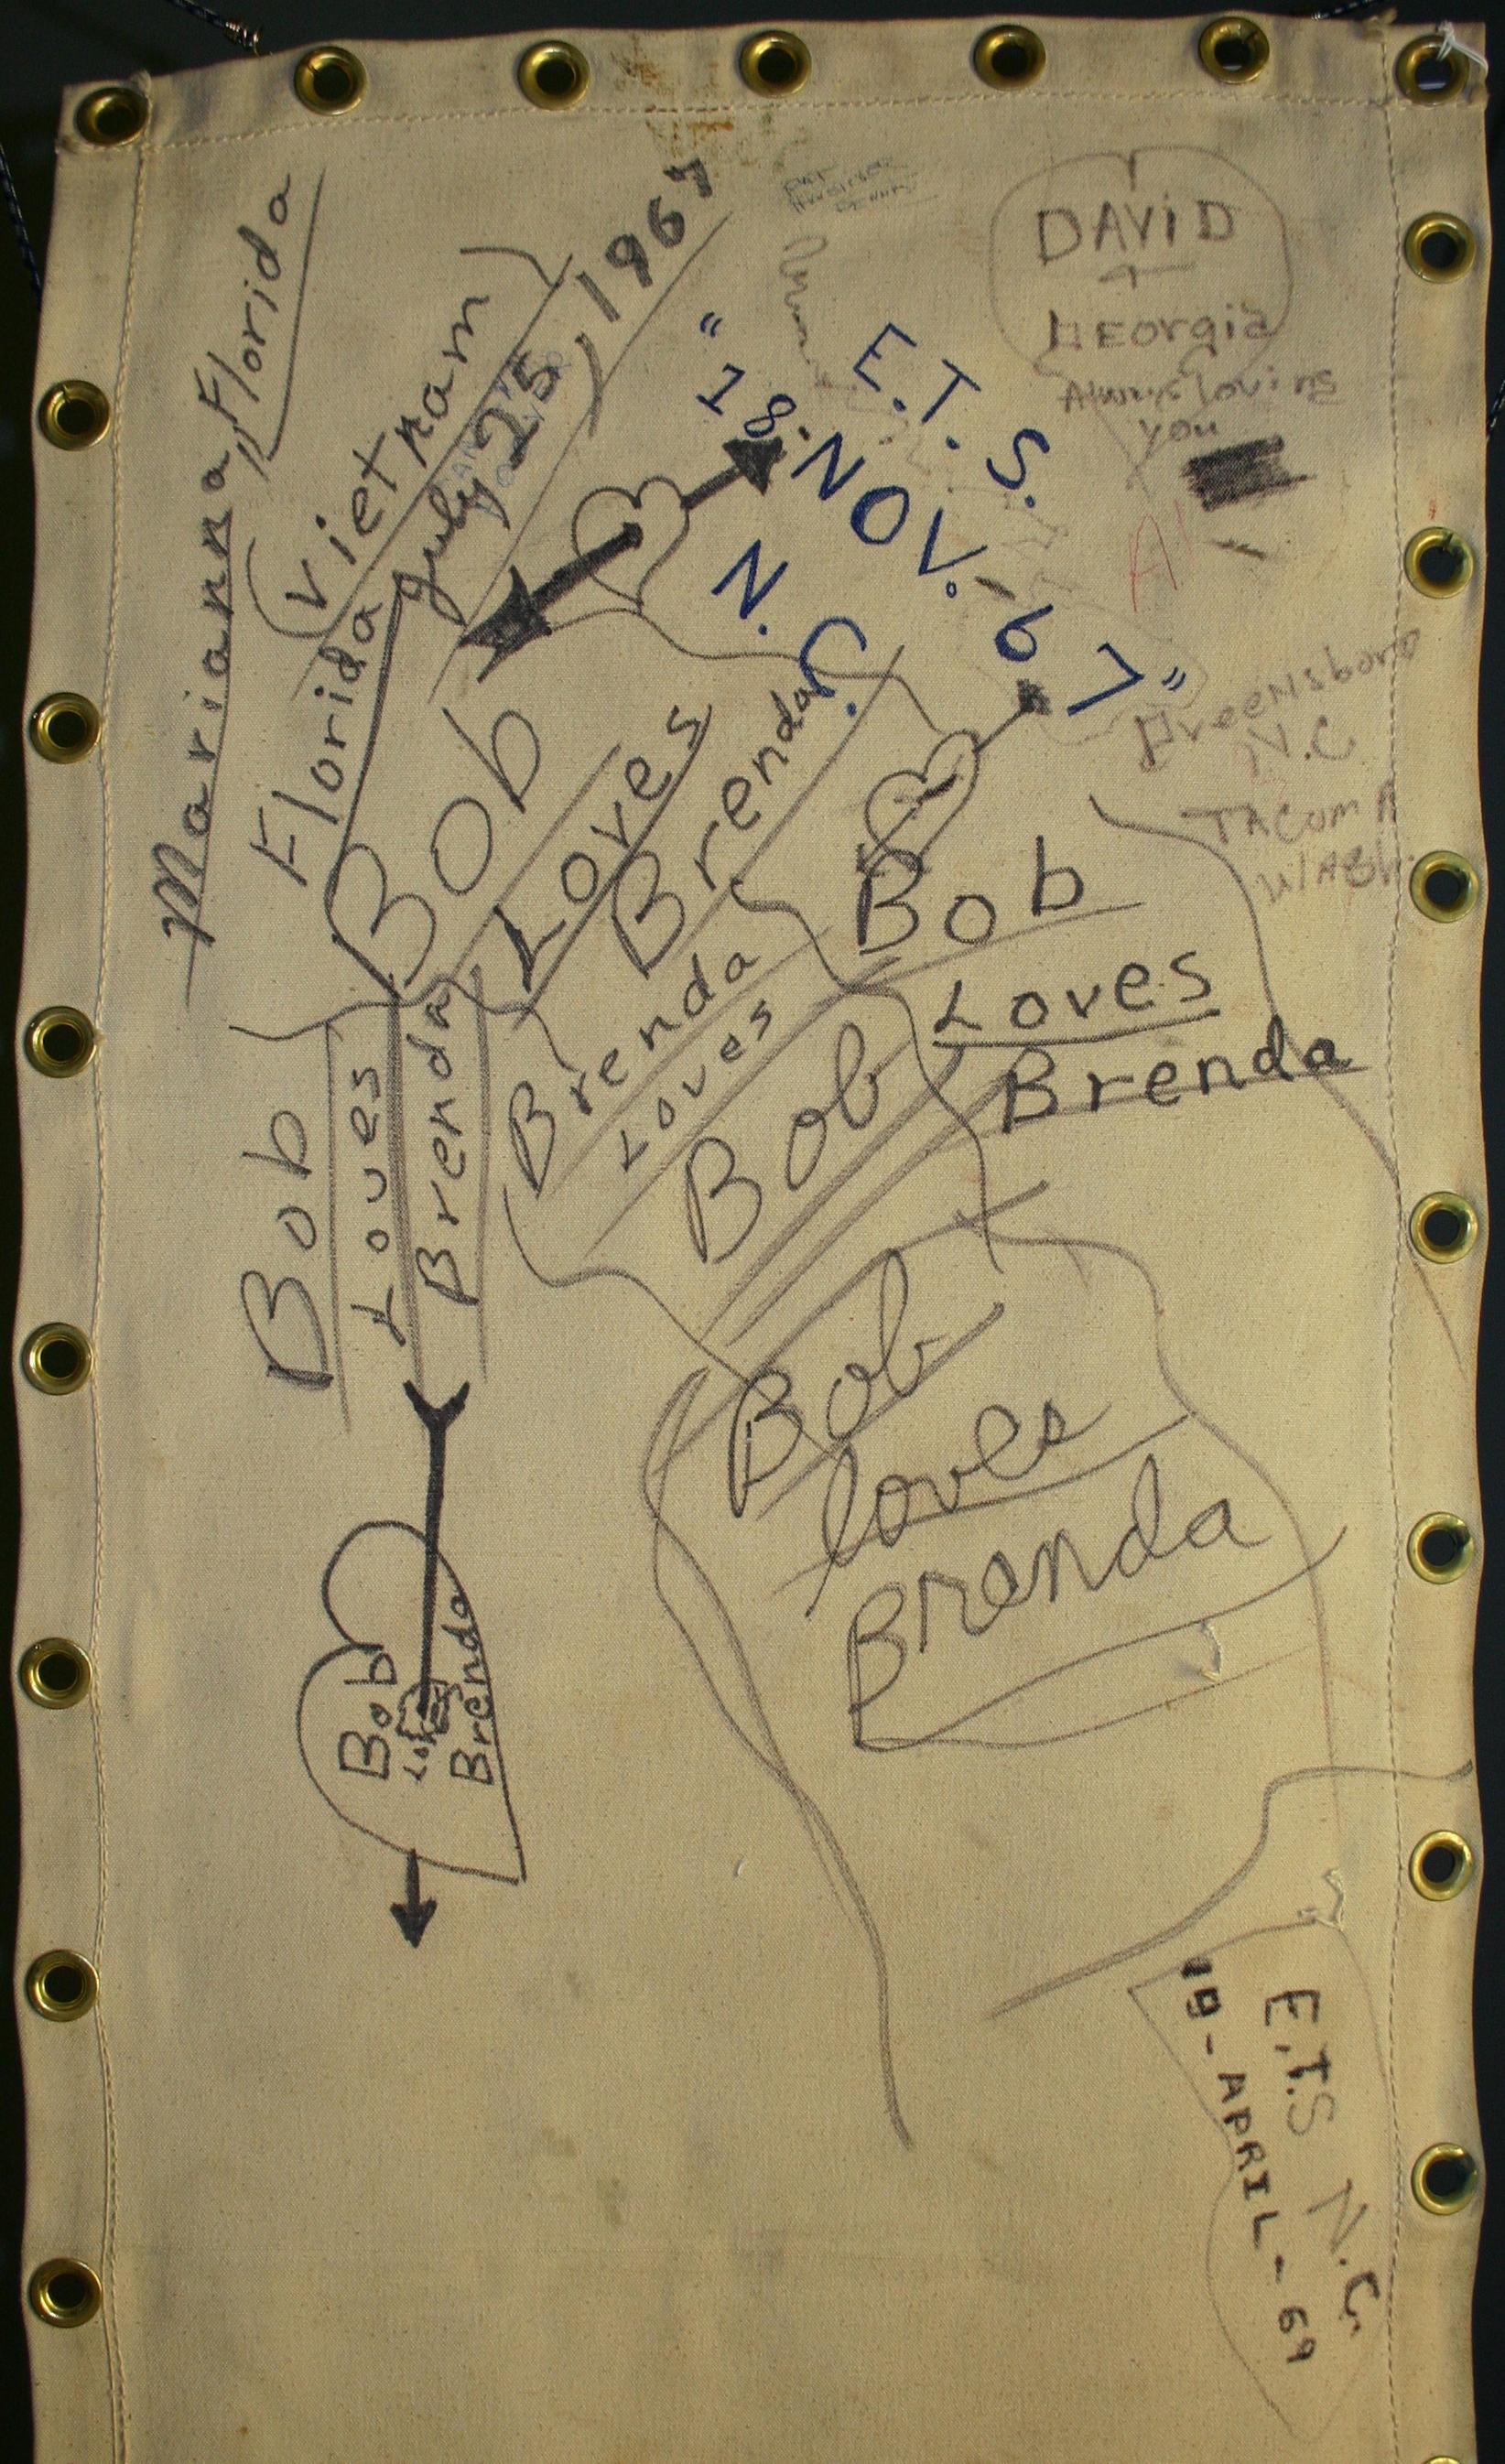 Marianna, Florida
(Vietnam)
Florida July 25, 1967
DAVID
+
GEorgia
Always loving
you
E.T.S.
"18. NOV. - 67"
N.C.
Greensboro
N.C
TACOMA
WASh.
Bob
Loves
Brenda
Bob
Loves
Brenda
Brenda
Loves
Bob
Bob
Loves
Brenda
Bob
loves
Brenda
Bob
Loves
Brenda
E.T.S N.C.
19-APRIL-69